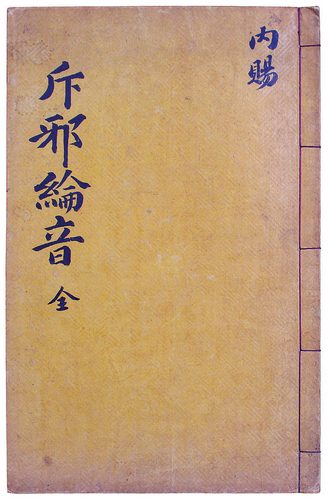 內賜
斥邪綸音 全